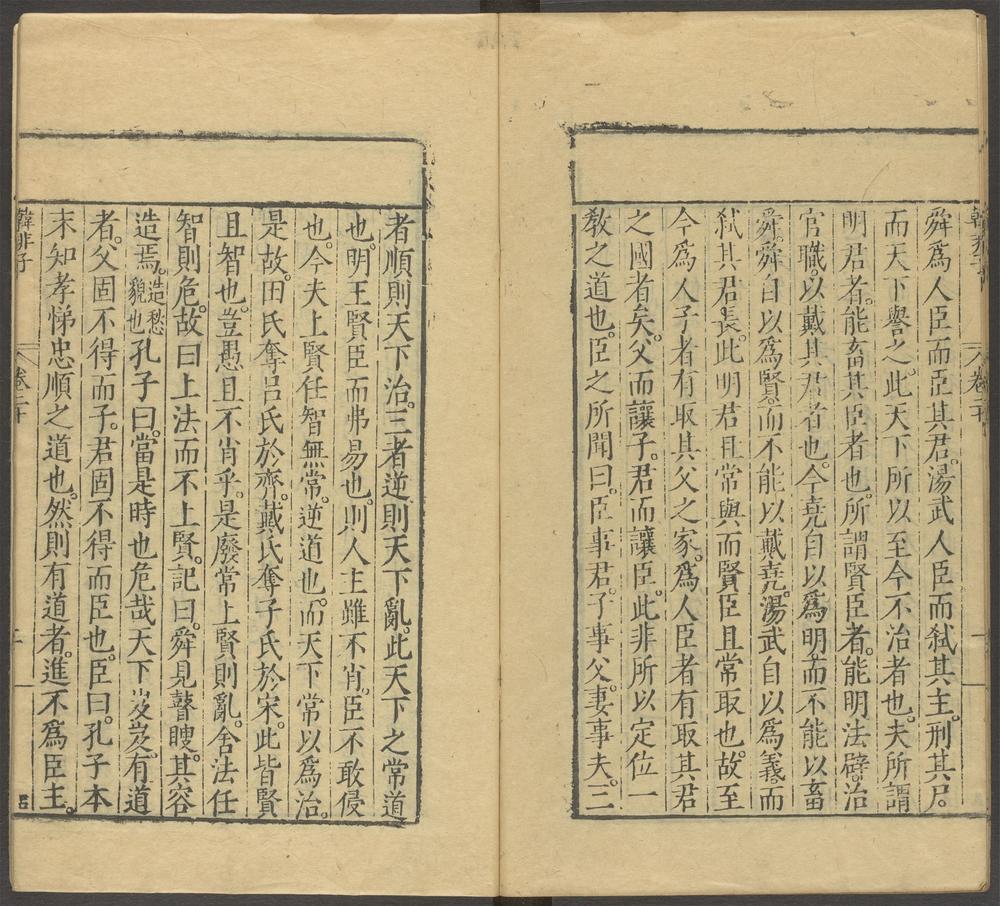 舜爲人臣而臣其君。湯武人臣而弑其主。刑其尸。
而天下譽之。此天下所以至今不治者也。夫所謂
明君者。能畜其臣者也。所謂賢臣者。能明法辟。治
官職。以戴其君者也。今堯自以爲明。而不能以畜
舜。舜自以爲賢。而不能以戴堯。湯武自以爲義。而
弑其君長。此明君且常與而賢臣且常取也。故至
今爲人子者有取其父之家。爲人臣者有取其君
之國者矣。父而讓子。君而讓臣。此非所以定位一
敎之道也。臣之所聞曰。臣事君。子事父。妻事夫。三
者順則天下治。三者逆則天下亂。此天下之常道
也。明王賢臣而弗易也。則人主雖不肖。臣不敢侵
也。今夫上賢任智無常。逆道也。而天下常以爲治。
是故。田氏奪呂氏於齊。戴氏奪子氏於宋。此皆賢
且智也。豈愚且不肖乎。是廢常上賢則亂。舍法任
智則危。故曰上法而不上賢。記曰。舜見瞽瞍。其容
造焉。造愁貌也孔子曰。當是時也危哉天下岌岌。有道
者。父固不得而子。君固不得而臣也。臣曰。孔子本
末知孝悌忠順之道也。然則有道者。進不爲臣主。
韓非子 卷二十